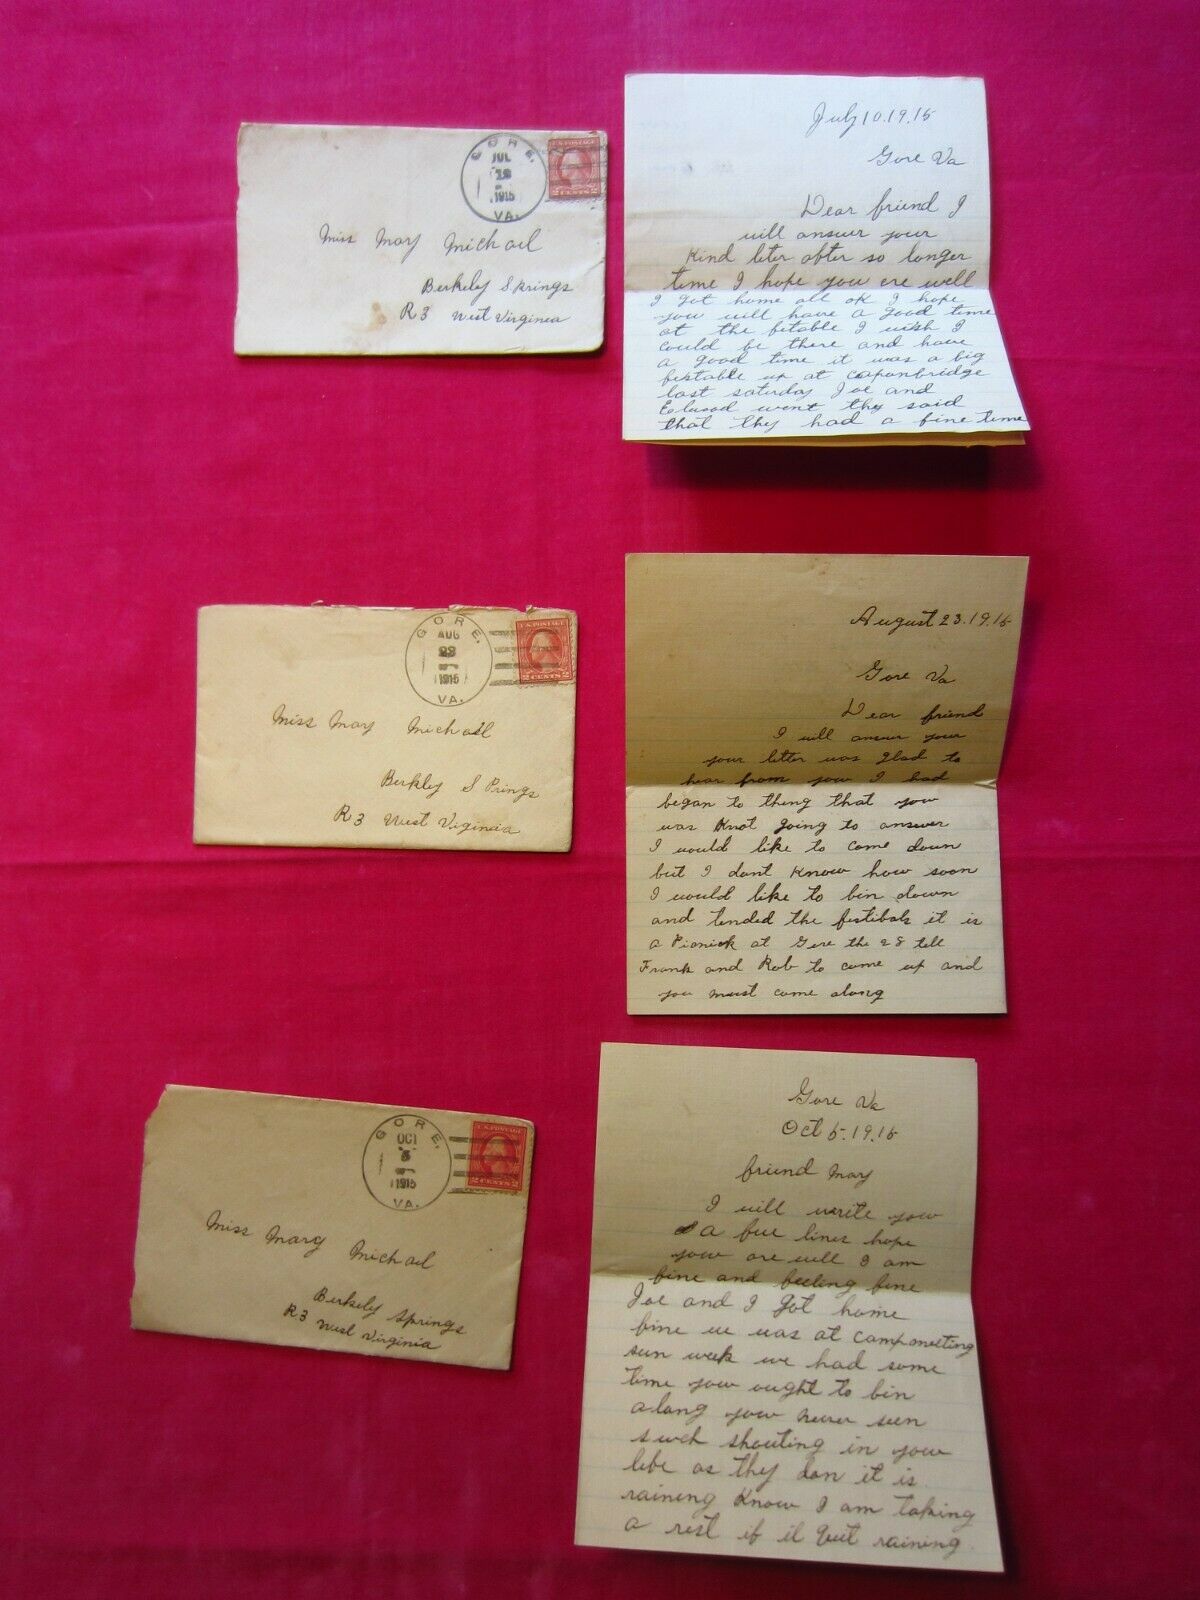 GORE.
JUL
1915
VA.
U.S. POSTAGE
2 CENTS 2
Miss May Michail
Berkely Springs
R3 West Virginia
July 10.19.15
Gore Va
Dear friend I
will answer your
Kind leter after so longer
time I hope you ere well
I got home all ok I hope
you will have a good time
at the festable I wish I
could be there and have
a good time it was a big
festable up at Caponbridge
last saturday Joe and
went they said
that they had a fine time
GORE.
AUG
1915
VA.
U.S. POSTAGE
2 CENTS 2
Miss May Michail
Berkley S Prings
R3 West Virginia
August 23.19.15
Gore Va
Dear friend
I will answer your
your letter was glad to
hear from you I had
began to thing that you
was Knot going to answer
I would like to come down
but I dont Know how soon
I would like to bin down
and tended the festibals it is
a Picnick at Gore the 28 tell
Frank and Rob to come up and
you must come along
GORE.
OCT
5
1915
VA.
U.S. POSTAGE
2 CENTS 2
Miss Mary Michail
Berkily Springs
R3 West Virginia
Gore Va
Oct 5.19.15
friend May
I will write you
a fue lines hope
yow are well I am
fine and feeling fine
Joe and I got home
fine we was at campmeeting
sun week we had some
time yow ought to bin
along yow never seen
such shouting in yow
life as they don it is
raining Know I am taking
a rest if it Quit raining